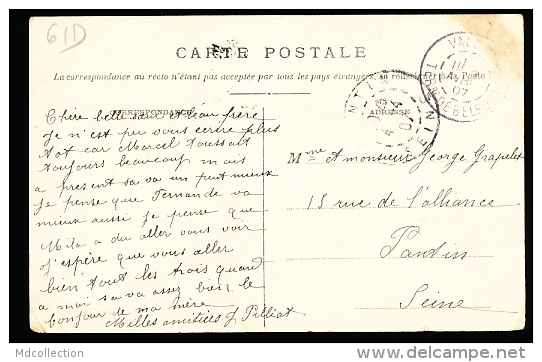 61D
CARTE POSTALE
La correspondance au recto n'étant pas acceptée par tous les pays étrangers, se renseigner à la Poste
CORRESPONDANCE
ADRESSE
Chère belle sœur et beau frère
Je n'est pu vous ecrire plus
tot car Marcel toussait
toujours beaucoup mais
a present sa va un peut mieux
Je pense que Fernande va
mieux aussi Je pense que
Mila a du aller vous voir
J'espère que vous aller
bien tout les trois quand
a moi sa va assez bien le
bonjour de ma mère
Milles amitices J Pilliat
Mme et monsieur George Grapelet
15 rue de l'alliance
Pantin
Seine
Mdcollection
http://www.delcampe.net